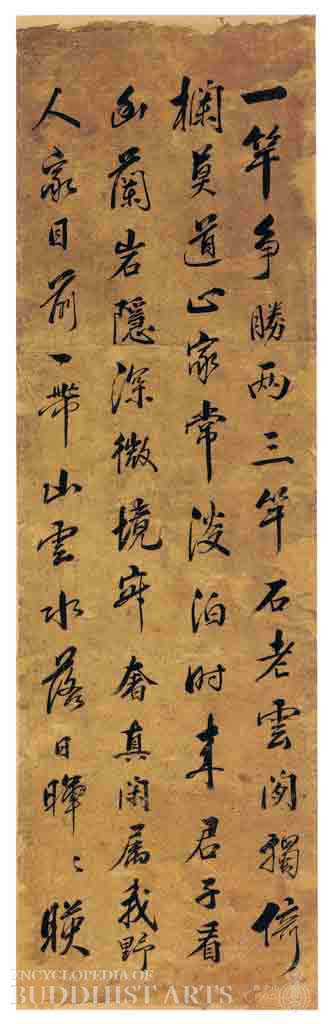 一竿争勝两三竿石老雲閒獨倚
欄莫道山家常淡泊时来君子看
幽蘭岩隱深微境奢真闲属我野
人家目前一帶山雲水落日暉〻暎
ENCYCLOPEDIA OF
BUDDHIST ARTS